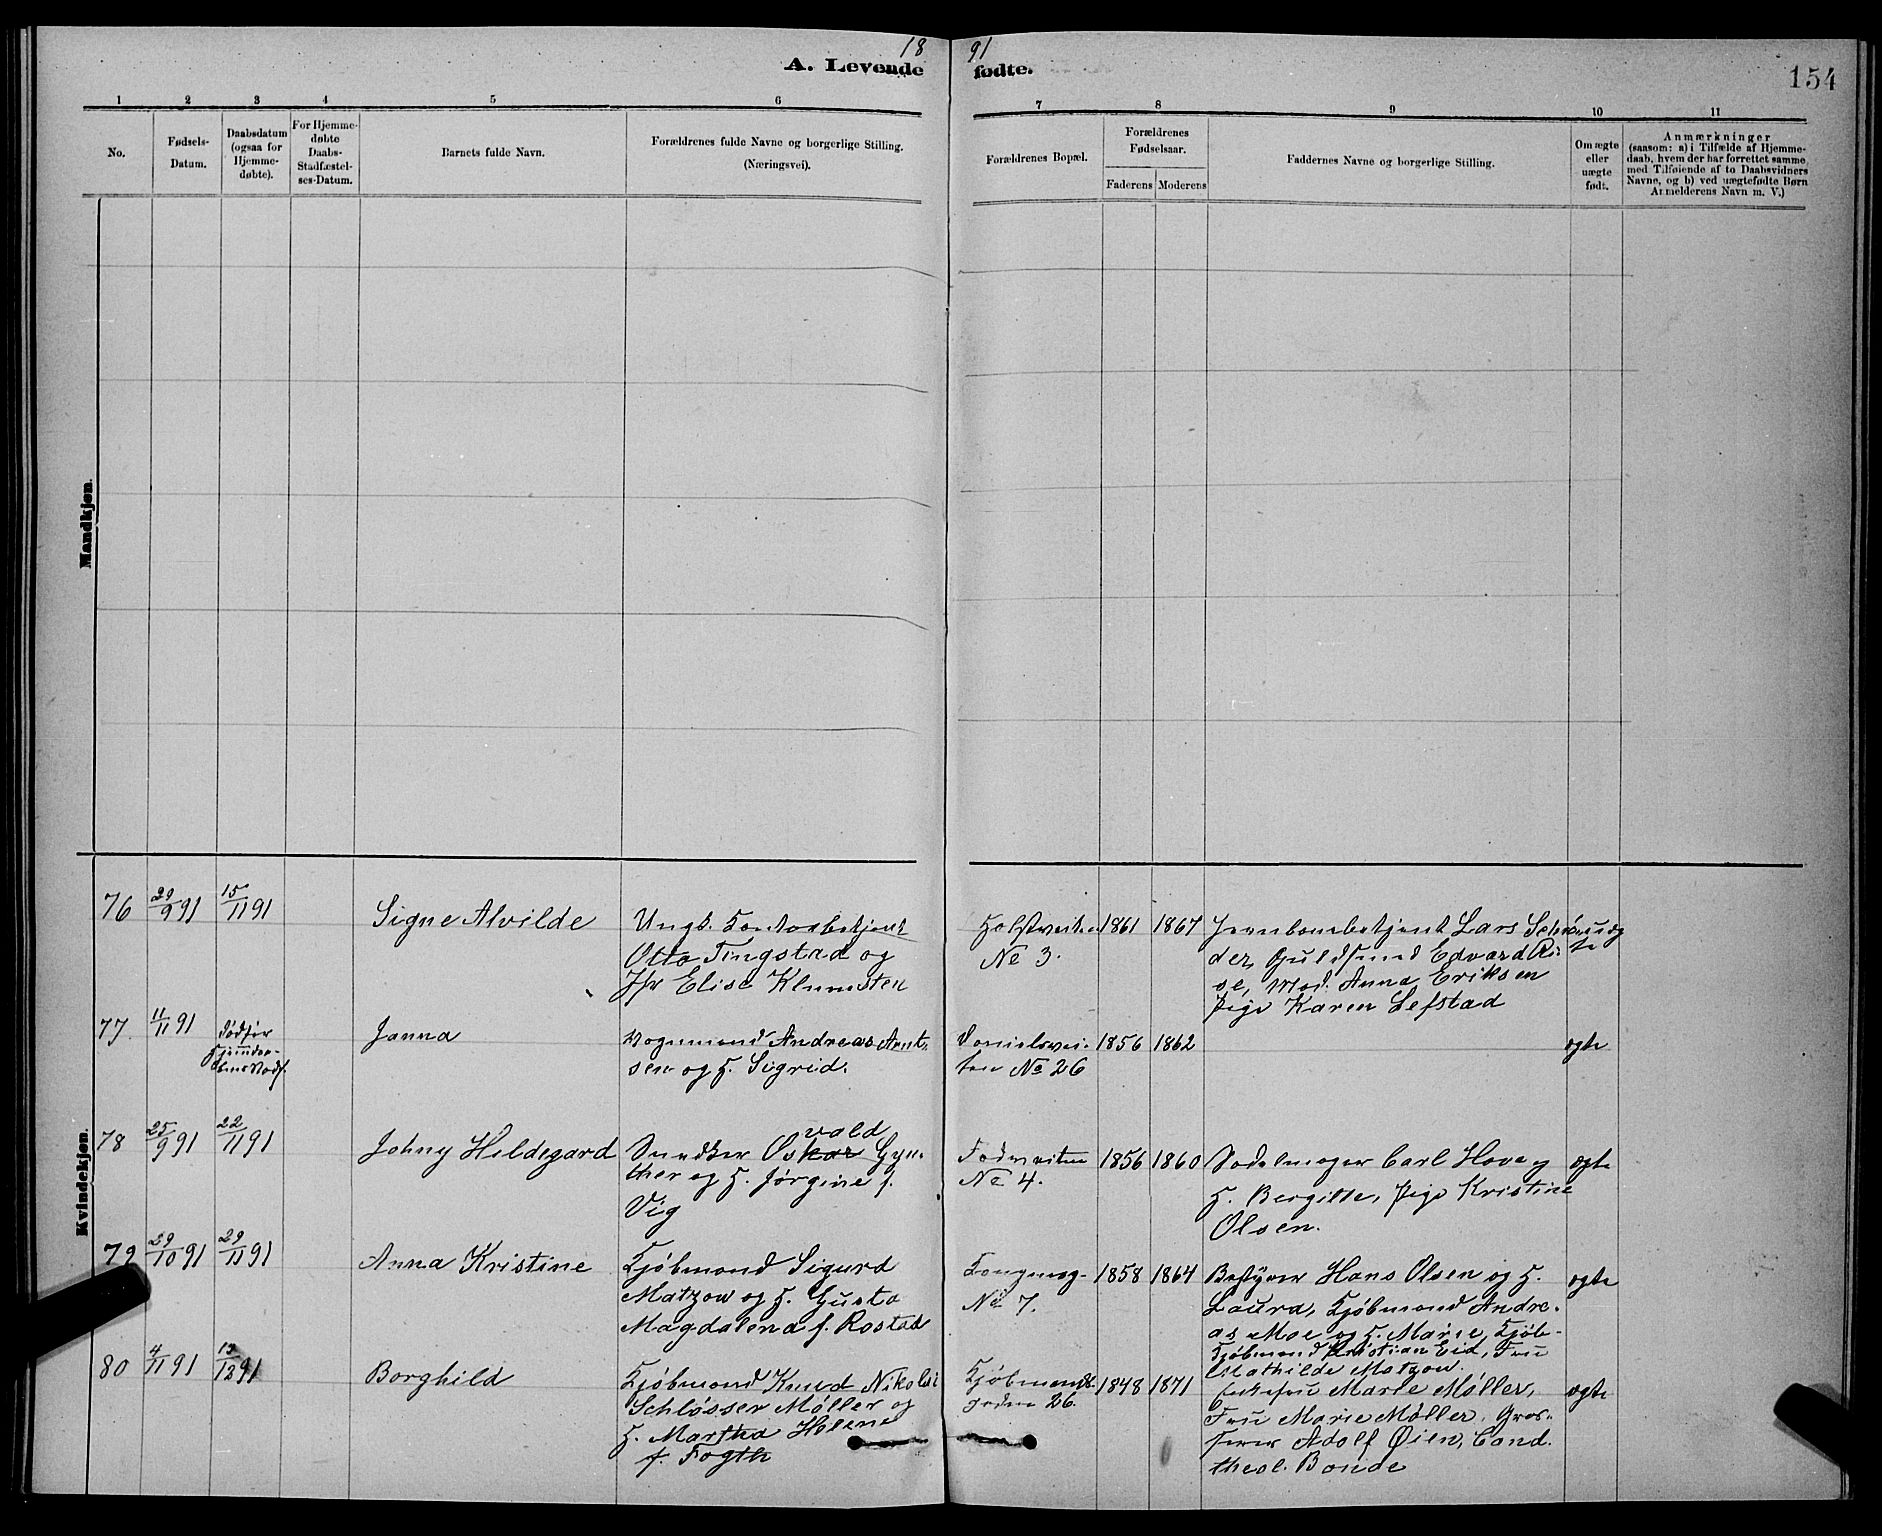 18 91
A. Levende fødte.
154
1 2 3 4 5 6 7 8 9 10 11
No.
Fødsels-
Datum.
Daabsdatum
(ogsaa for
Hjemme-
døbte).
For Hjemme-
døbte
Daabs-
Stadfæstel-
ses-Datum.
Barnets fulde Navn.
Forældrenes fulde Navne og borgerlige Stilling.
(Næringsvei).
Forældrenes Bopæl.
Forældrenes
Fødselsaar.
Faderens Moderens
Faddernes Navne og borgerlige Stilling.
Om ægte
eller
uægte
født.
Anmærkninger
(saasom: a) i Tilfælde af Hjemme-
daab, hvem der har forrettet samme
med Tilføiende af to Daabsvidners
Navne, og b) ved uægtefødte Børn
Anmelderens Navn m. V.)
Mandkjøn.
Kvindekjøn.
76 29/9 91 15/11 91
Signe Alvilde
Ungk. Kontorbetjent
Otto Tingstad og
Elise Klumsten
No 3.
1861 1867
Jernbanebetjent Lars
der, Guldsmed Edvard Ri-
se, Mad. Anna Eriksen
Pige Karen Lefstad
uæg
te
77. 11/11 91
Janna
Vognmand Andreas Arnt-
sen og H. Sigrid.
Danielsvei-
ten No 26
1856 1862
ægte
78 25/9 91 22/11 91
Johny Hildegard
vald
Snedker Oskar Gyn-
ther og H. Jørgine f.
Vig
No 4.
1856 1860
Sadelmager Carl Hove og
H. Bergitte, Pige Kristine
Olsen.
ægte
79 29/10 91 29/11 91
Anna Kristine
Kjøbmand Sigurd
Matzow og H. Gusta
Magdalena f. Rostad
Kongensg.
No 7.
1858 1864
Bestyrer Hans Olsen og H.
Laura, Kjøbmand Andre-
as Moe og H. Marie, Kjøb-
Kjøbmand Kristian Eid, Fru
Mathilde Matzow.
ægte
80 4/11 91 13/12 91
Borghild
Kjøbmand Knud Nikolai
Schløsser Møller og
H. Martha Helene
f. Fogth
Kjøbmands-
gaden 26.
1848 1871
Enkefru Marie Møller,
Fru Marie Møller, Gros-
serer Adolf Øien, Cand.
theol. Bonde
ægte